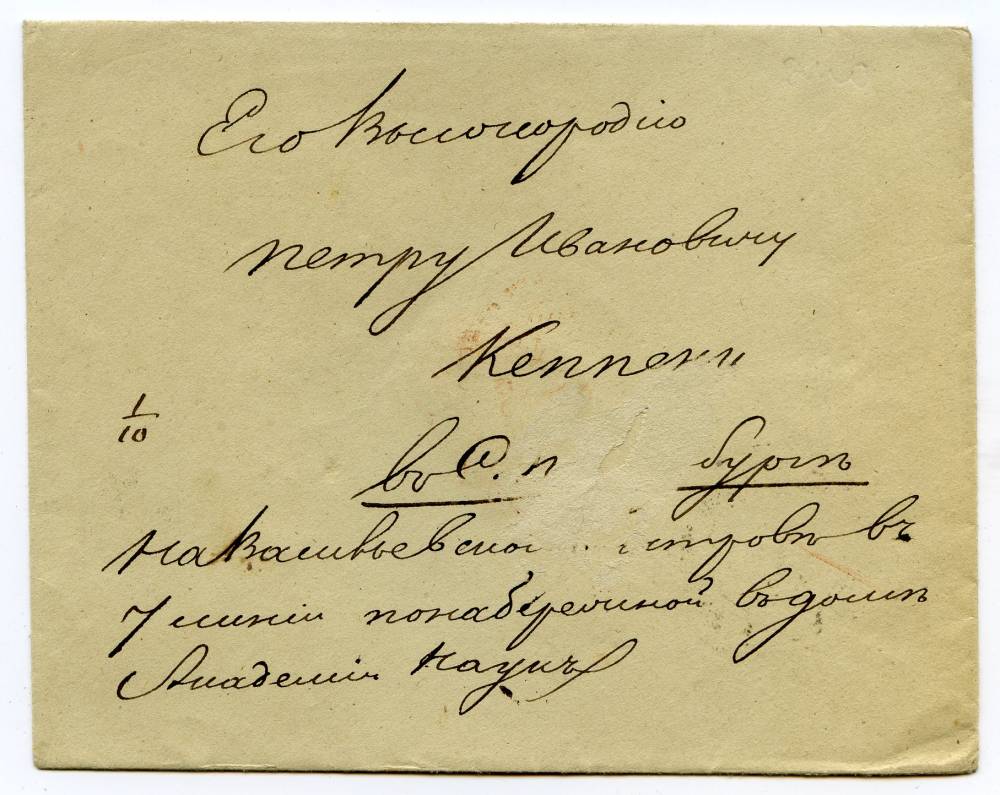 Его Высокородію
Петру Ивановичу
Кеппену
1/10
въ С. П бургѣ
На Васильевско островѣ въ
7 линіи по набережной въ домѣ
Академіи Наукъ